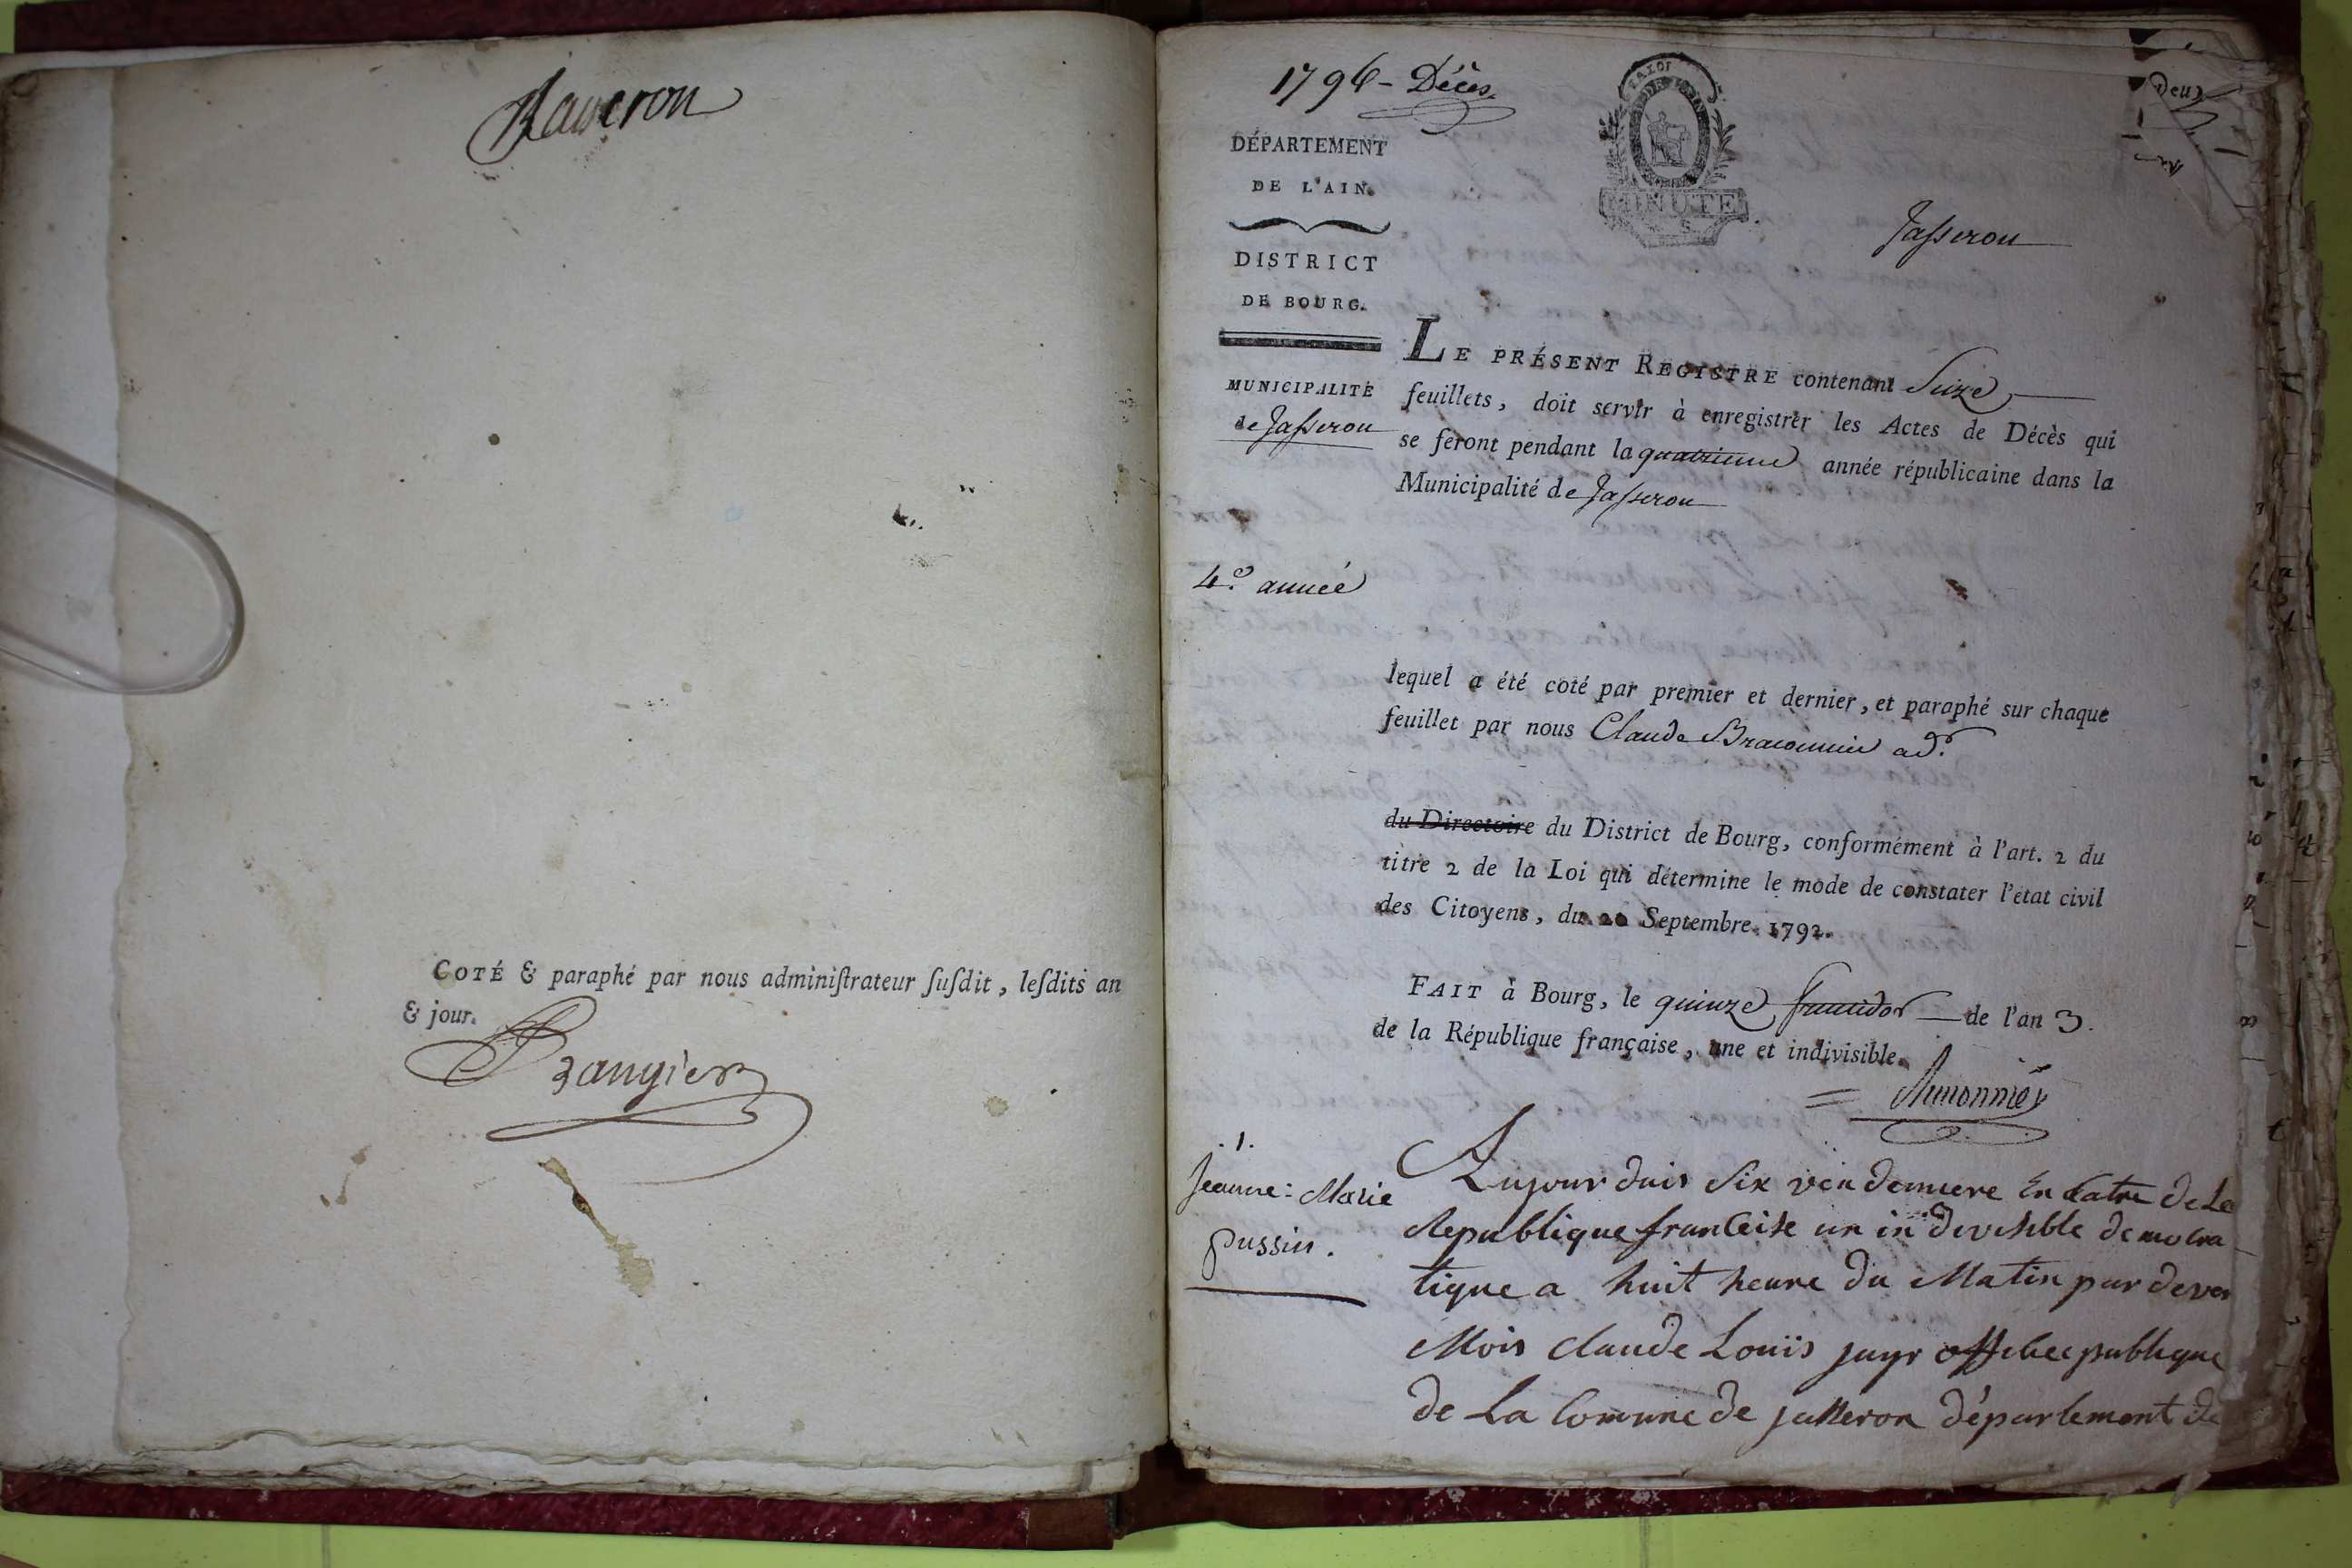 COTÉ & paraphé par nous administrateur susdit, lesdits an
& jour.
1796 - Décès
LA LOI
MINUTE
DÉPARTEMENT
DE L'AIN.
DISTRICT
DE BOURG.
MUNICIPALITÉ
de Jasseron
4.e année
Jasseron
LE PRÉSENT REGISTRE contenant Seize
feuillets, doit servir à enregistrer les Actes de Décès qui
se feront pendant la quatrieme année républicaine dans la
Municipalité de Jasseron
lequel a été coté par premier et dernier, et paraphé sur chaque
feuillet par nous Claude ad.r
du Directoire du District de Bourg, conformément à l'art. 2 du
titre 2 de la Loi qui détermine le mode de constater l'état civil
des Citoyens, du 20 Septembre 1792.
FAIT à Bourg, le quinze fructidor de l'an 3.
de la République française, une et indivisible.
1.
Jeanne: Marie
pussin.
Aujourduis Six vendemiere En Catre de La
Republique franceise un in divisible democra
tique a huit heure du Matin par dever
Mois Claude Louis juyr officiee publique
de La Comune de jasseron département de
Deux